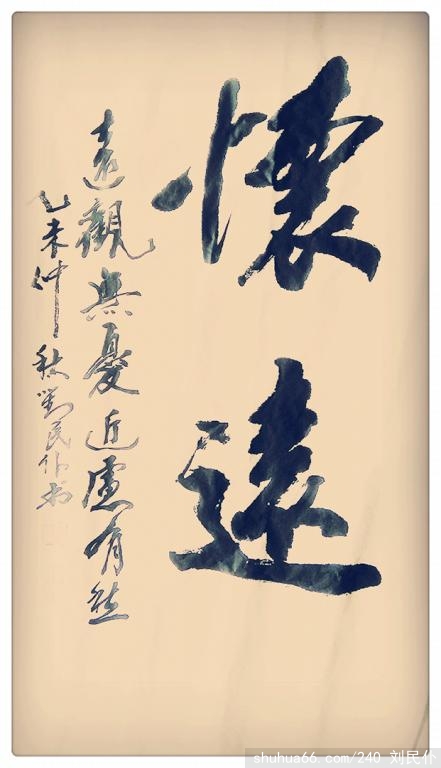 懷遠
遠觀無憂近慮有然
乙未仲秋劉民仆书
shuhua66.com/240 刘民仆